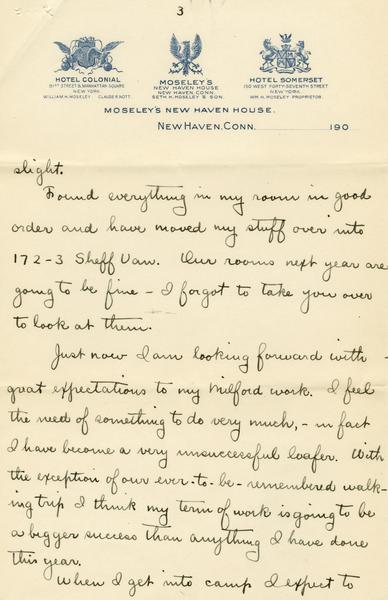 3
HOTEL COLONIAL
81ST STREET & MANHATTAN SQUARE
NEW YORK.
WILLIAM H. MOSELEY. CLAUDE R. NOTT.
MOSELEY'S
NEW HAVEN HOUSE
NEW HAVEN, CONN.
SETH H. MOSELEY & SON.
HOTEL SOMERSET
150 WEST FORTY-SEVENTH STREET
NEW YORK.
WM. H. MOSELEY, PROPRIETOR.
MOSELEY'S NEW HAVEN HOUSE.
NEW HAVEN, CONN. 190
slight.
Found everything in my room in good
order and have moved my stuff over into
172-3 Sheff Van. Our rooms next year are
going to be fine – I forgot to take you over
to look at them.
Just now I am looking forward with
great expectations to my Milford work. I feel
the need of something to do very much, – in fact
I have become a very unsuccessful loafer. With
the exception of our ever-to-be-remembered walk-
ing trip I think my term of work is going to be
a bigger success than anything I have done
this year.
When I get into camp I expect to